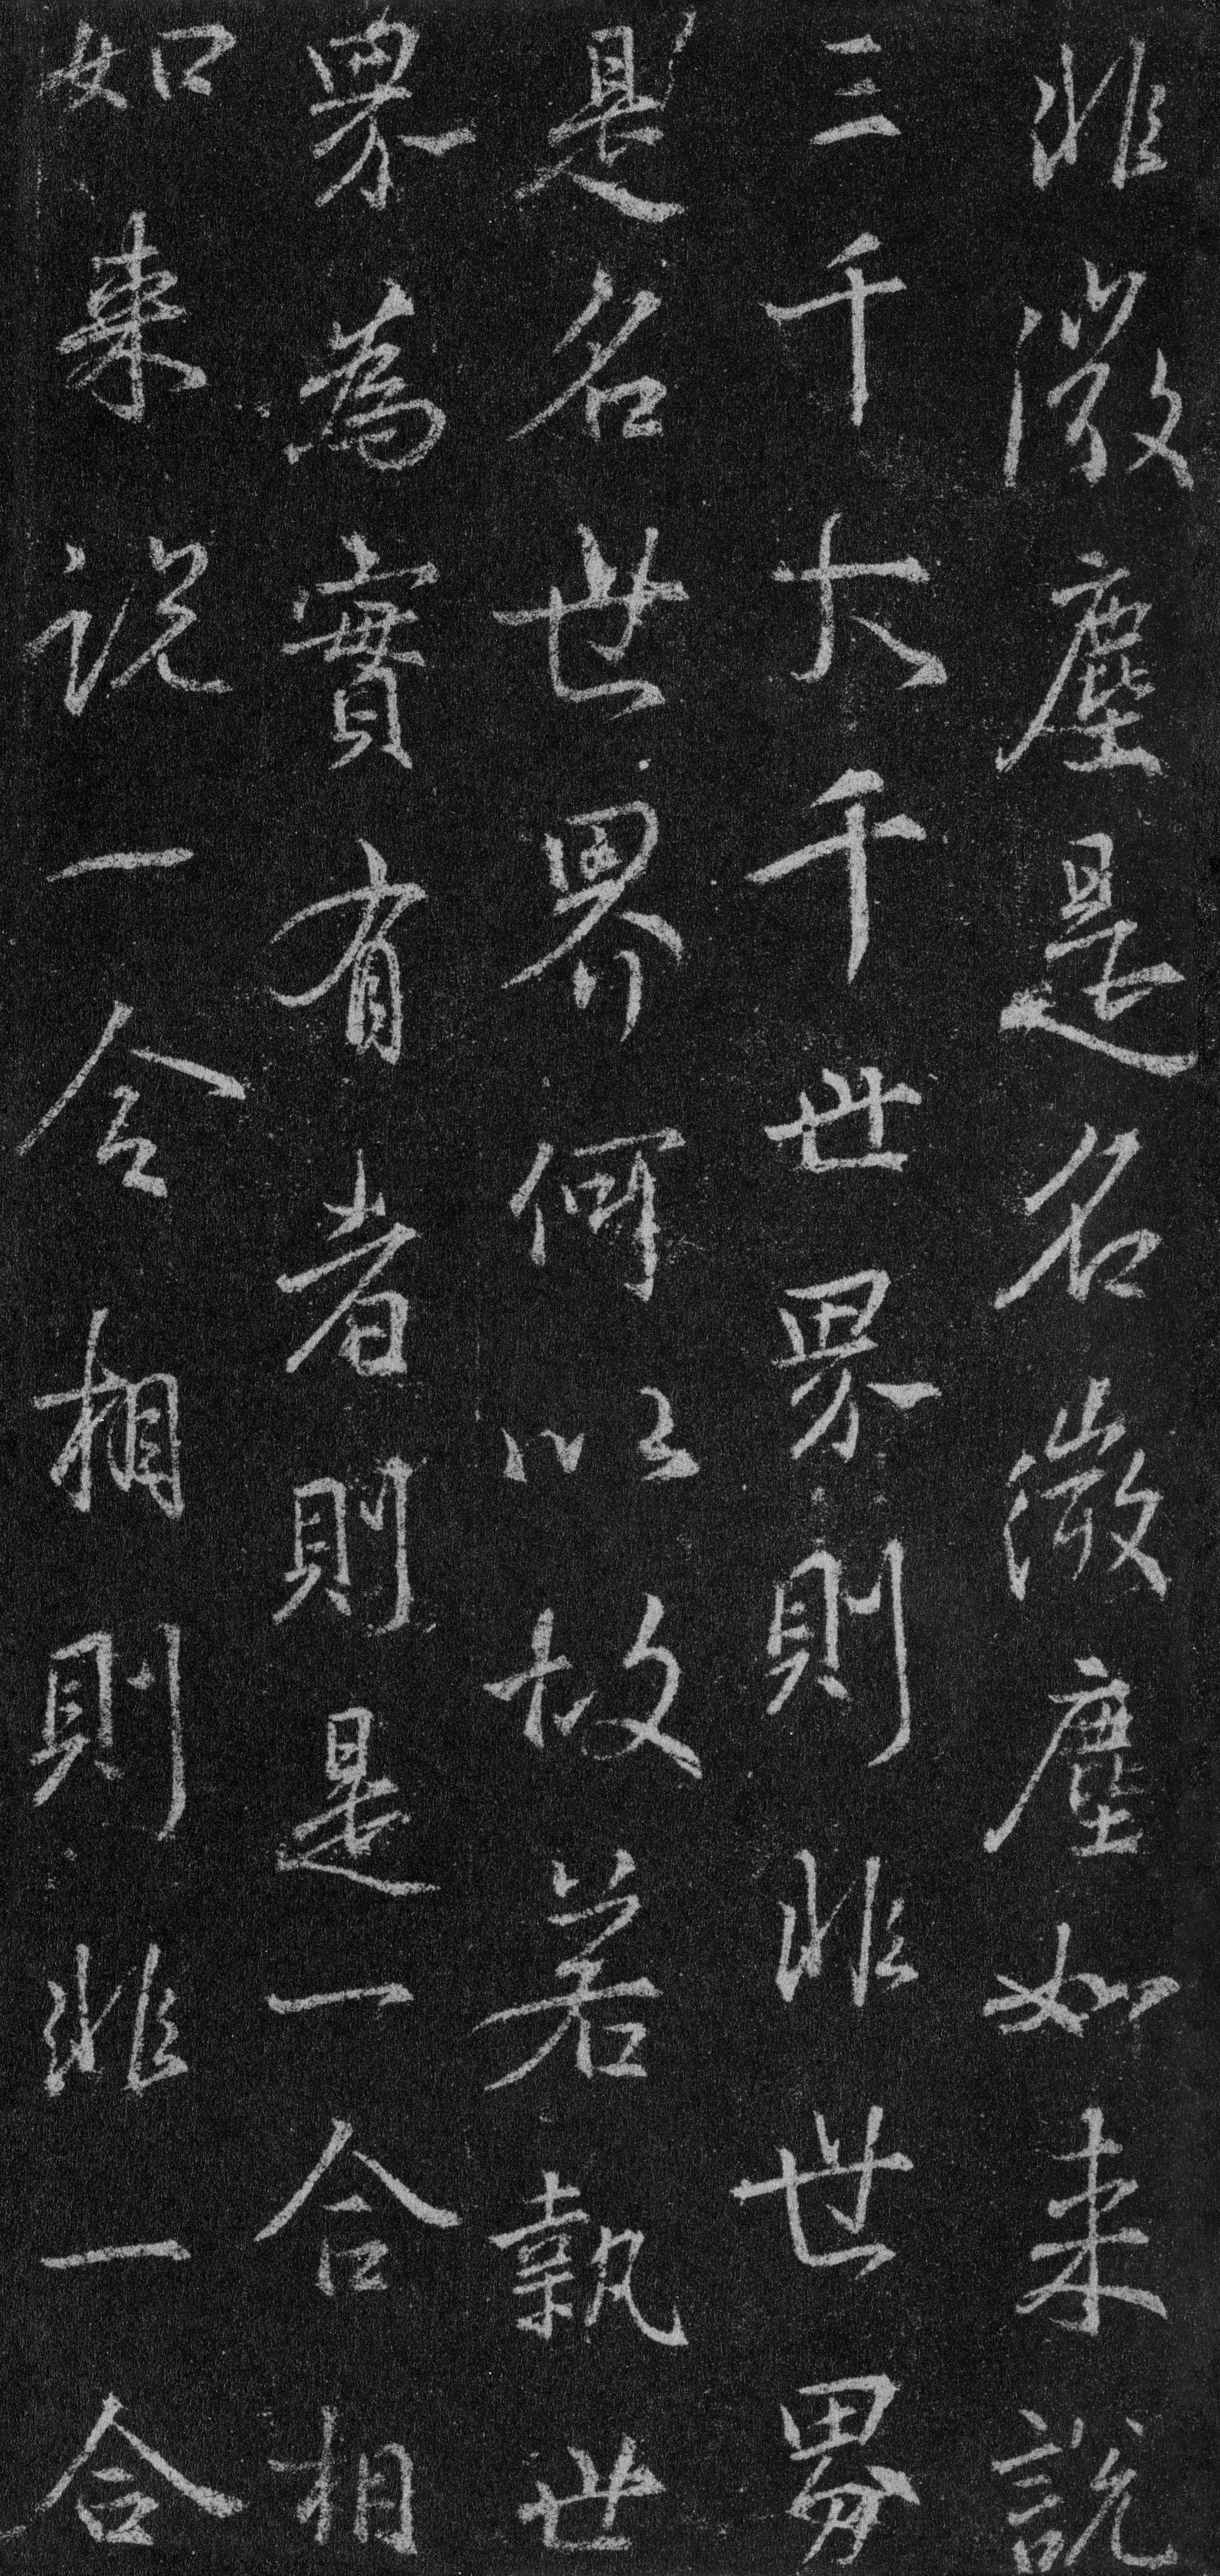 非微塵是名微塵如来說
三千大千世界則非世界
是名世界何以故若執世
界為實有者則是一合相
如来說一合相則非一合